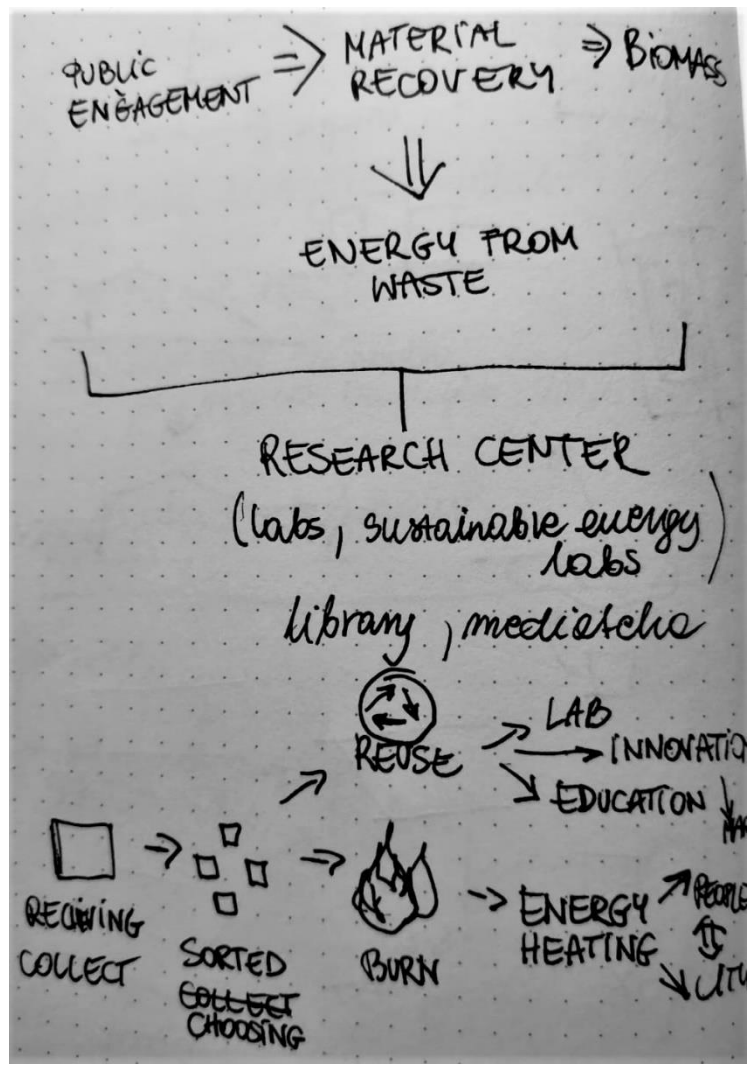 PUBLIC
ENGAGEMENT
MATERIAL
RECOVERY
BIOMASS
ENERGY FROM
WASTE
RESEARCH CENTER
(labs, sustainable energy
labs)
library, mediateka
REUSE
LAB
INNOVATIO
EDUCATION
RECIEVING
COLLECT
SORTED
COLLECT
CHOOSING
BURN
ENERGY
HEATING
PEOPLE